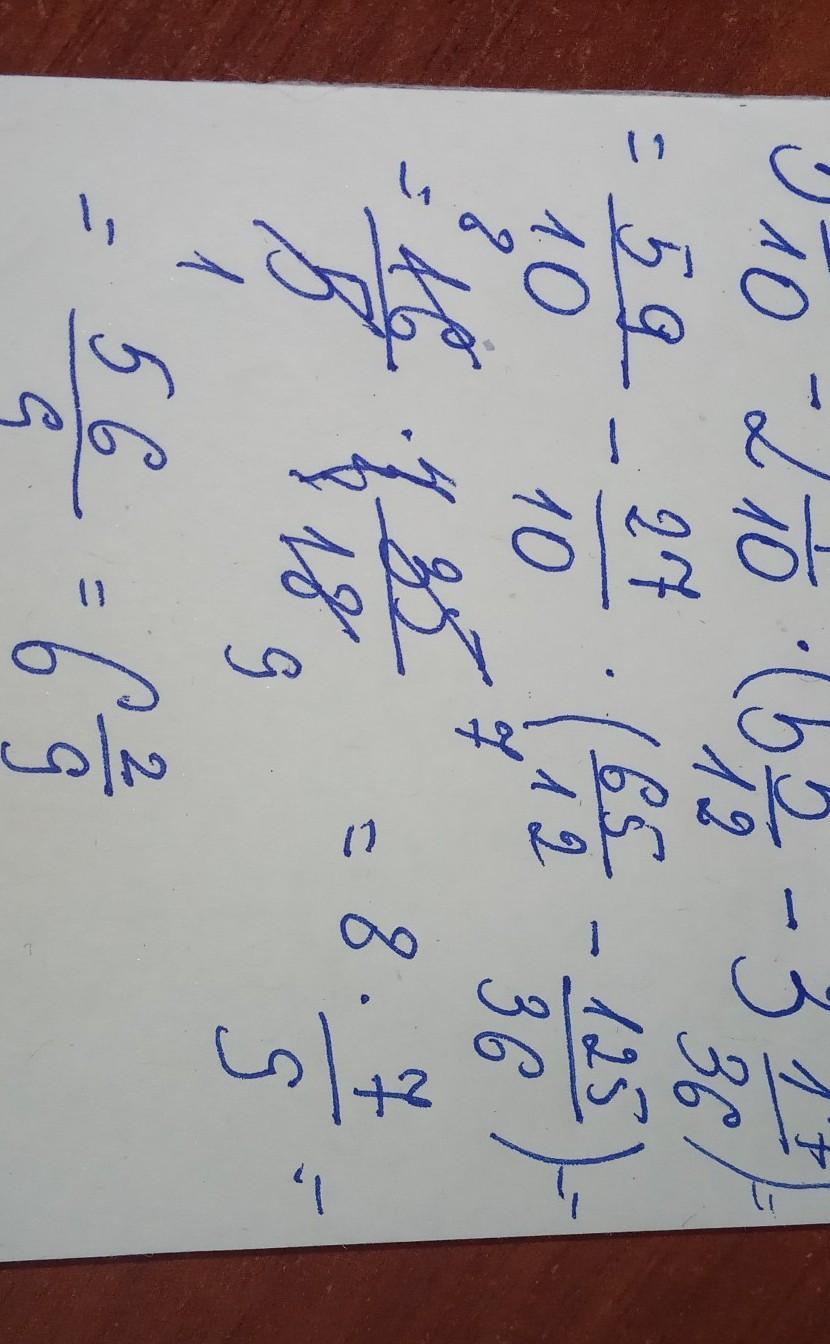 10 - 2 /10 · (5 5/12 - 3 17/36) =
= 59/10 - 27/10 · (65/12 - 125/36) =
= 8 16/5 1 · 35/18 7 9 = 8 · 7/9 =
= 56/9 = 6 2/9